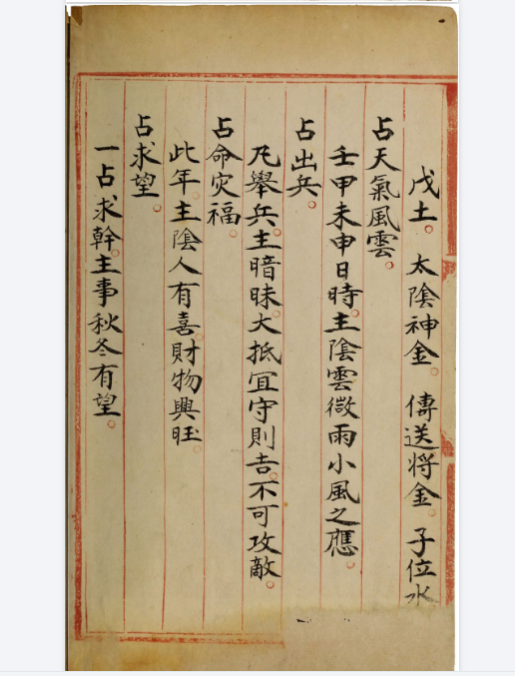 戊土。太陰神金。傳送将金。子位水
占天氣風雲。
壬甲未申日時。主陰雲微雨小風之應。
占出兵。
凡舉兵。主暗昧。大抵宜守則吉。不可攻敵。
占命灾福。
此年。主陰人有喜。財物興旺。
占求望。
一占求幹。主事秋冬有望。